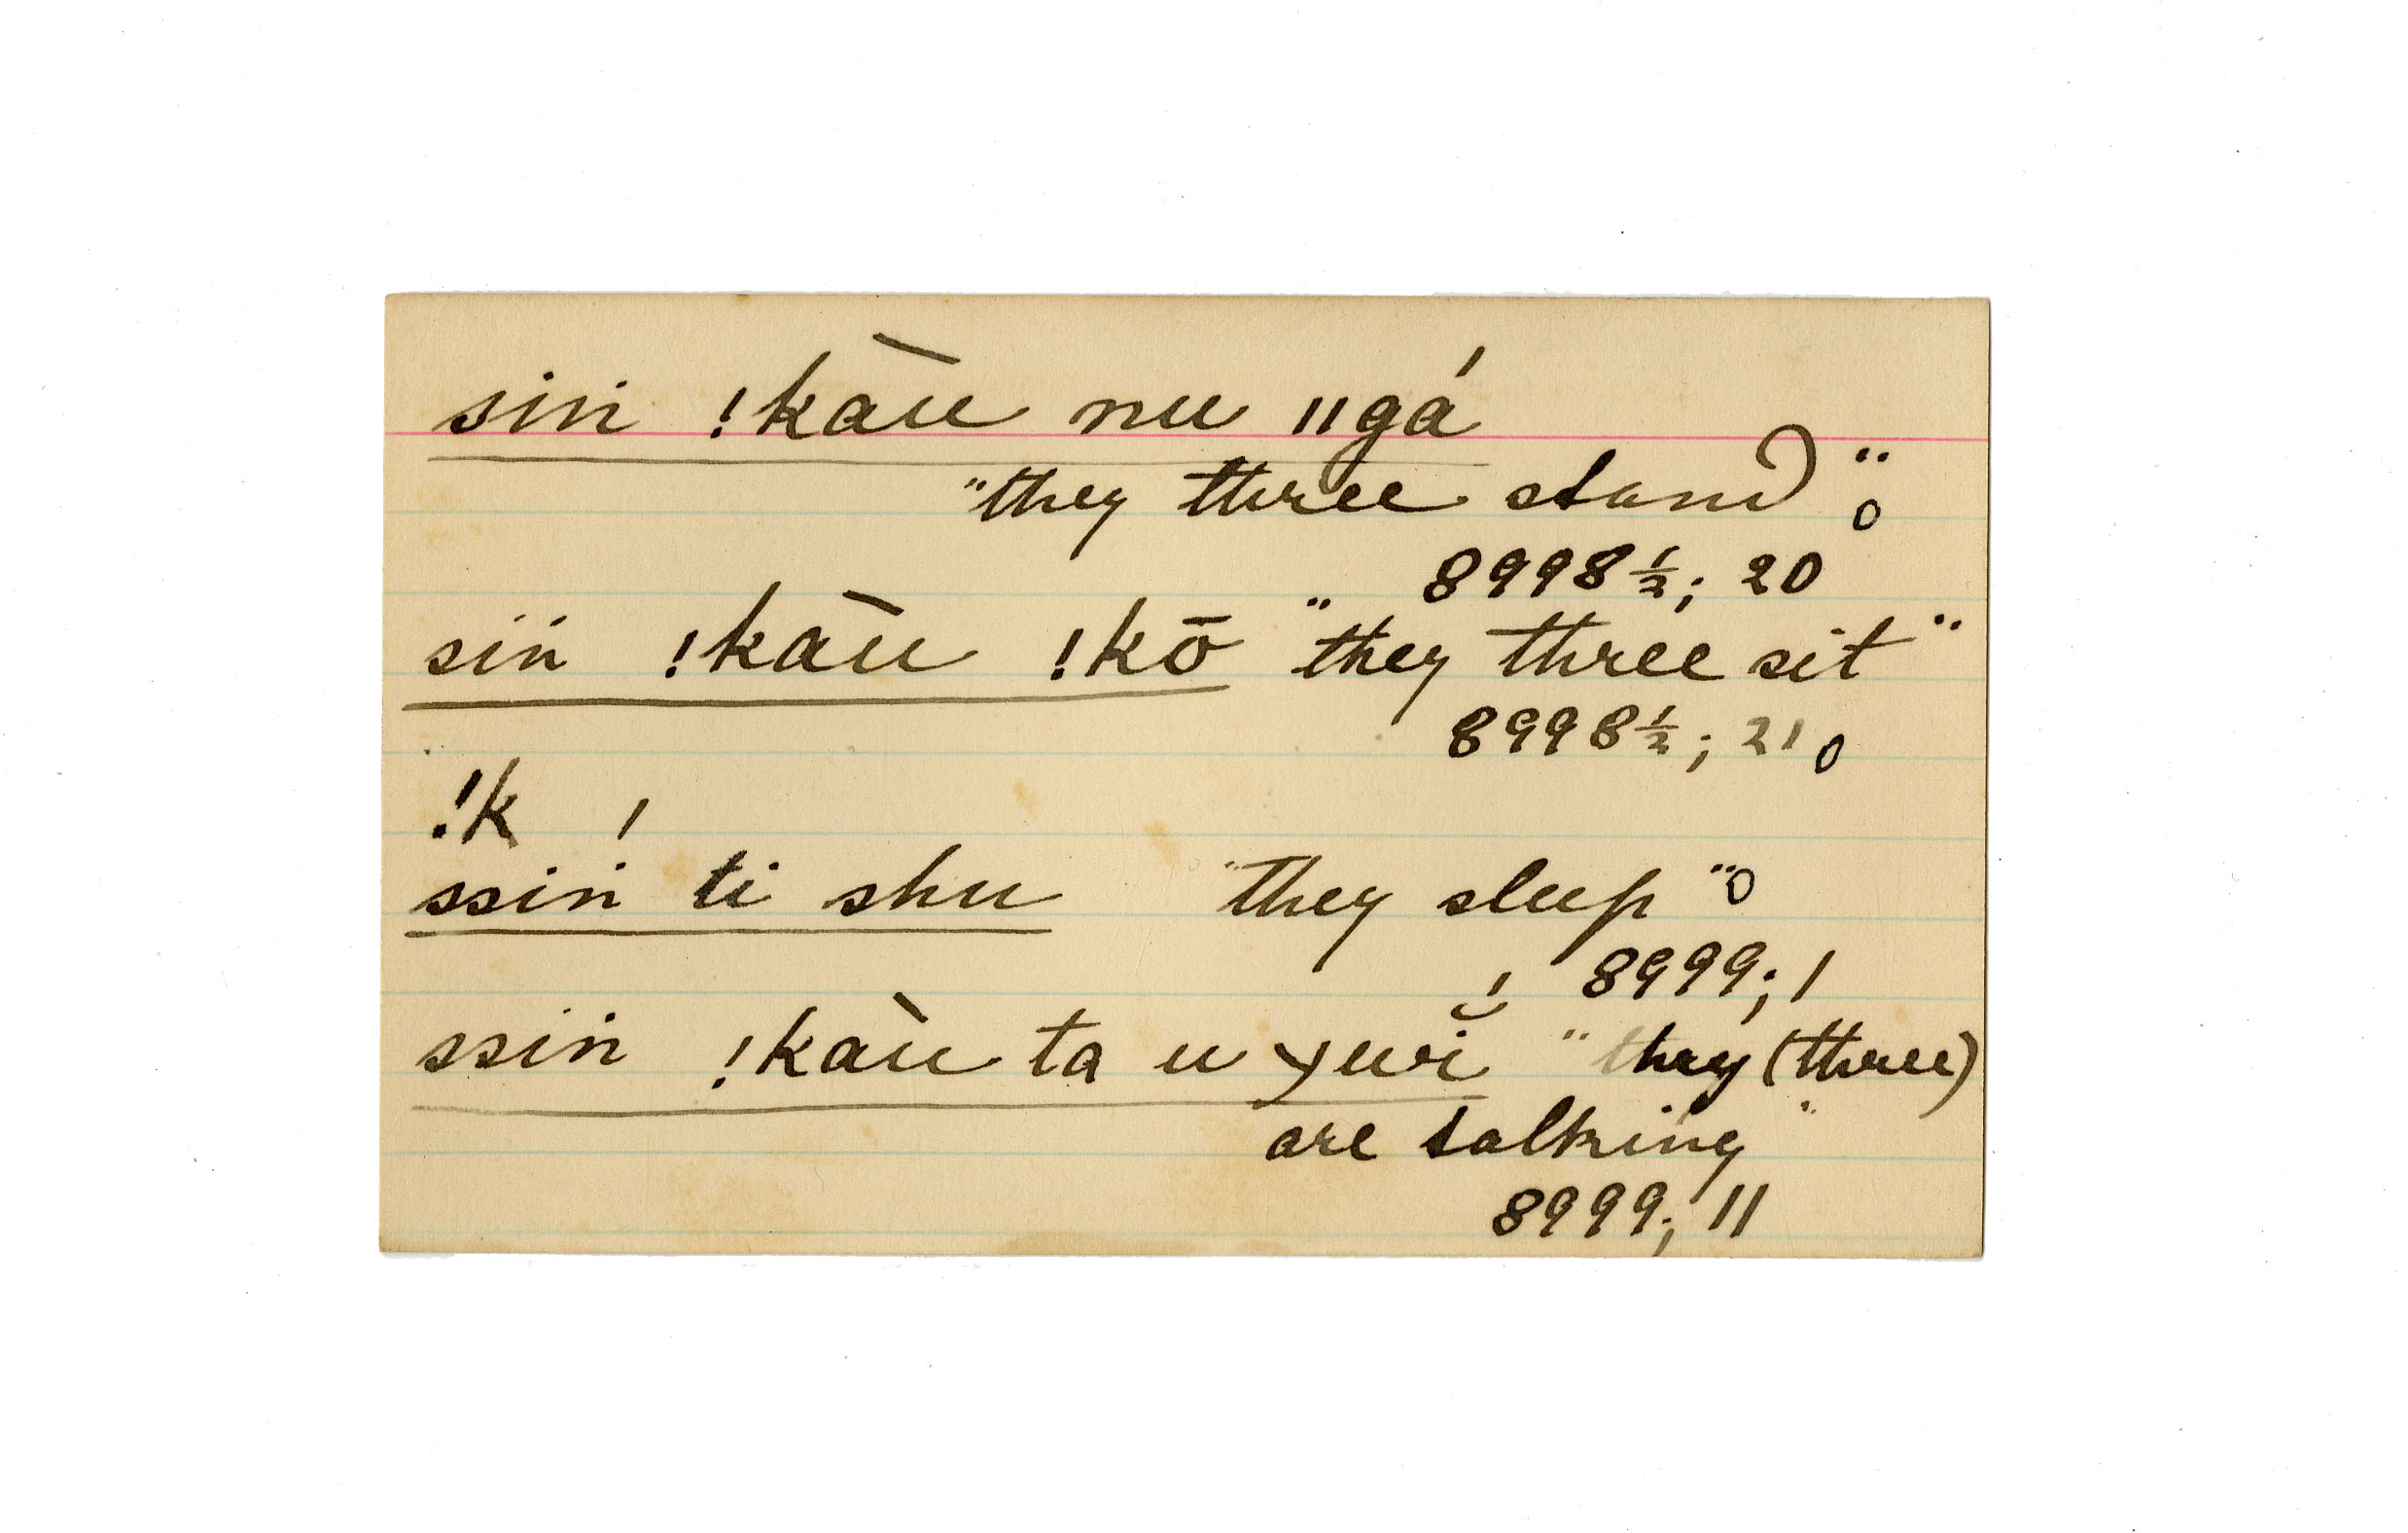 sin !kàu nu ǁgá
"they three stand";
8998½; 20
sin !kàu !kō "they three sit"
8998½; 21.
!k
ssin ti shu "they sleep".
8999; 1
ssin !kàu ta u χwĭ́ "they (three)
are talking"
8999; 11